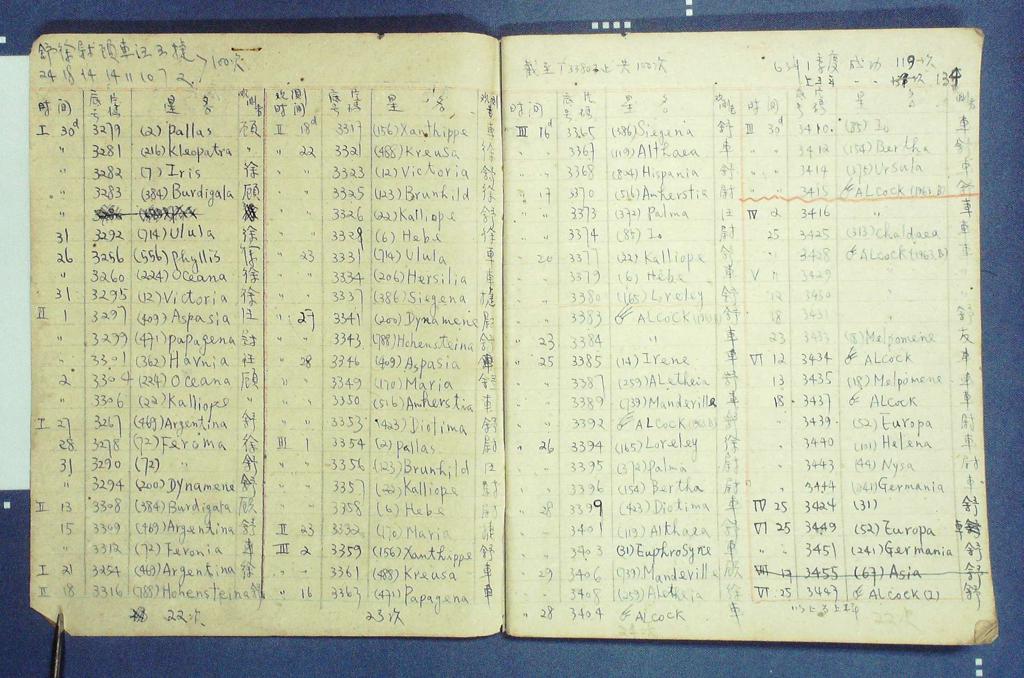 舒徐尉顾車汪王捷 〉100次
24 18 14 14 11 10 7 2
时间 底片号 星名 观测者
I 30d 3279 (2) Pallas 顾
" 3281 (216) Kleopatra "
3282 (7) Iris 徐
" 3283 (384) Burdigala 顾
31 3292 (714) Ulula 徐
26 3256 (556) Phyllis
" 3260 (224) Oceana 徐
31 3295 (12) Victoria 徐
II 1 3297 (409) Aspasia 汪
" 3299 (471) Papagena 尉
" 3301 (362) Havnia 汪
2 3304 (224) Oceana 顾
" 3306 (22) Kalliope "
I 27 3267 (469) Argentina 舒
28 3278 (72) Feronia 徐
31 3290 (72) " 舒
" 3294 (200) Dynamene 舒
II 13 3308 (384) Burdigala 顾
15 3309 (469) Argentina 舒
" 3312 (72) Feronia 車
I 21 3254 (469) Argentina 徐
II 18 3316 (788) Hohensteina 舒
22次
观测时间 底片号 星名 观测者
II 18d 3317 (156) Xanthippe 車
" 22 3321 (488) Kreusa 徐
" " 3323 (12) Victoria 徐
" " 3325 (123) Brunhild 徐
" " 3326 (22) Kalliope 舒
3328 (6) Hebe 徐
" 23 3331 (714) Ulula 車
" " 3334 (206) Hersilia 車
" " 3337 (386) Siegena 捷
" 27 3341 (200) Dynamene 尉
" " 3343 (788) Hohensteina 舒
" 28 3346 (409) Aspasia 車
" " 3349 (170) Maria 舒
" " 3350 (516) Amherstia 車
" " 3353 (423) Diotima 舒
III 1 3354 (2) Pallas 尉
" " 3356 (123) Brunhild 汪
" " 3357 (22) Kalliope 尉
" " 3358 (6) Hebe 尉
II 23 3332 (170) Maria
III 2 3359 (156) Xanthippe 舒
" " 3361 (488) Kreusa 車
" 16 3363 (471) Papagena 車
23次
截至 T3380 止 共 100次
时间 底片号 星名 观测者
III 16d 3365 (386) Siegena 舒
" " 3367 (119) Althaea 車
" " 3368 (804) Hispania 舒
" 17 3370 (516) Amherstia 尉
" " 3373 (372) Palma 汪
" " 3374 (85) Io 尉
" 20 3377 (22) Kalliope 舒
" " 3379 (6) Hebe 車
" " 3380 (165) Loreley 舒
" " 3383 ALCOCK 舒
" 23 3384 " 車
" 25 3385 (14) Irene 車
" " 3387 (259) Aletheia 舒
" " 3389 (739) Mandeville 車
" " 3392 ALCOCK 舒
" 26 3394 (165) Loreley 徐
" " 3395 (372) Palma 尉
" " 3396 (154) Bertha 尉
" 28 3399 (423) Diotima 車
" " 3401 (119) Althaea 舒
" " 3403 (31) Euphrosyne 車
" 29 3406 (739) Mandeville
" " 3408 (259) Aletheia 徐
" 28 3404 ALCOCK 車
63年1季度 成功 119次
134
时间 底片号 星名
III 30d 3410 (85) Io 車
" " 3412 (154) Bertha 舒
" " 3414 (375) Ursula 車
" " 3415 ALCOCK (1963.B) 舒
IV 2 3416 " 車
25 3425 (313) Chaldaea 車
3428 ALCOCK (1963.B) 車
V 11 3429 "
12 3430 "
18 3431 " 舒
23 3433 (18) Melpomene 友
VI 12 3434 ALCOCK 車
13 3435 (18) Melpomene 車
18 3437 ALCOCK 車
" 3439 (52) Europa 尉
" 3440 (101) Helena 車
" 3443 (44) Nysa 尉
" 3444 (241) Germania 車
IV 25 3424 (31) 舒
VI 25 3449 (52) Europa 舒
" " 3451 (241) Germania 舒
VII 17 3455 (67) Asia 舒
VI 25 3447 ALCOCK (2) 舒
22次